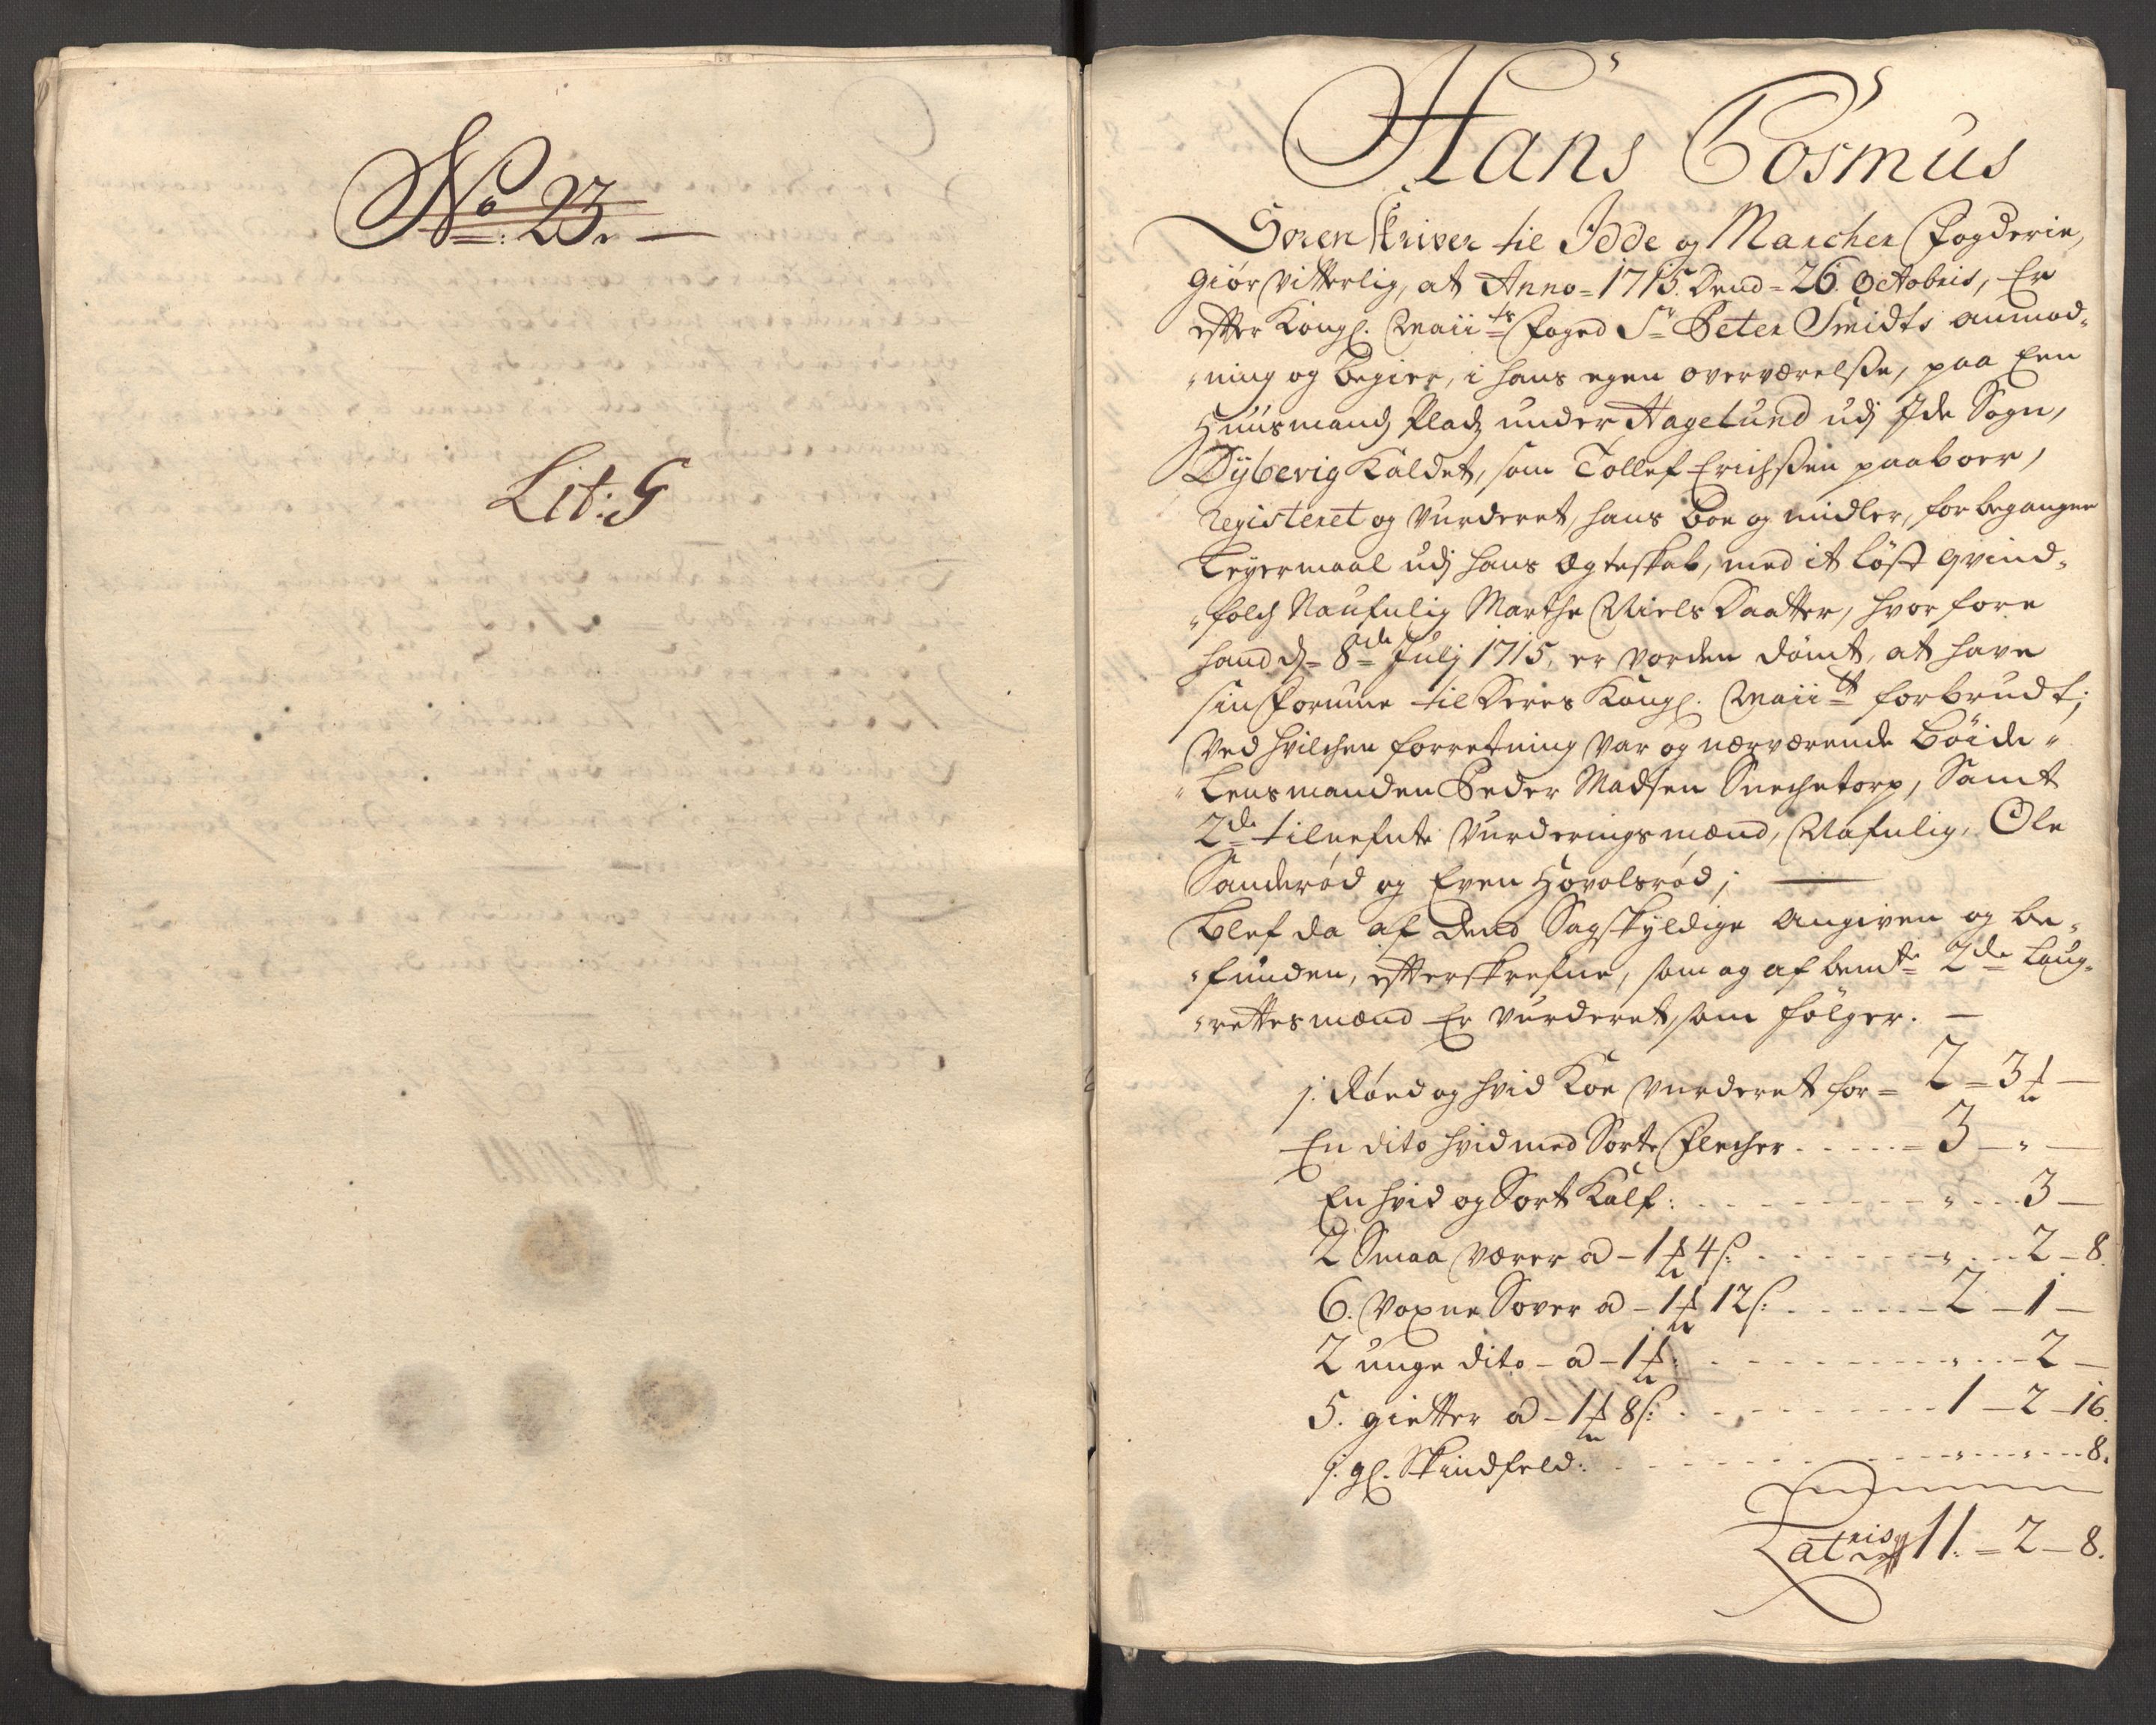 No: 23.
Lit: G
Hans Cosmus
Sorenskriver til Idde og Marcher Fogderie,
giör vitterlig, at Anno 1715. Dend 26. Octobris, Er
efter Kongl. Maiits foged Sr Peter Smidts anmod-
ning og begier, i hans egen overværelse, paa Een
Huusmands Plads under Hagelund udj Ide Sogn,
Dybevig Kaldet, som Tollef Erichsen paaboer,
Registeret og vurderet, hans boe og midler, for begangne
Leyermaal udj hans Ægteskab, med it löst qvind-
folch Naufnlig Marthe Niels Daatter, hvorfore
hand d. 8de Julj 1715. er vorden dömt, at have
sin formue til Deres Kongl. Maiitt forbrudt;
Ved hvilchen forretning var og nærværende böide-
Lensmanden Peder Madsen Snechetorp, Samt
2de tilnefnte vurderingsmænd, Nafnlig, Ole
Sanderöd og Even Hovolsröd;
Blef da af dend Sagskyldige angiven og be-
funden, efterskrefne, som og af bemte 2de Laug-
rettesmænd Er vurderet, som fölger.
1. Röed og hvid Koe vurderet for = 2 - 3 -
En dito hvid med Sorte Flecher 3 - " -
En hvid og Sort Kalf: " - 3 -
2 Smaa værer a - 1 4 s: " - 2 - 8.
6. voxne Sover a - 1 12 s: 2 - 1 -
2 unge dito - a - 1: " - 2 -
5. gietter a - 1 8 s: 1 - 2 - 16.
1. gl. Skindfeld: " - " - 8.
Latris 11. - 2 - 8.